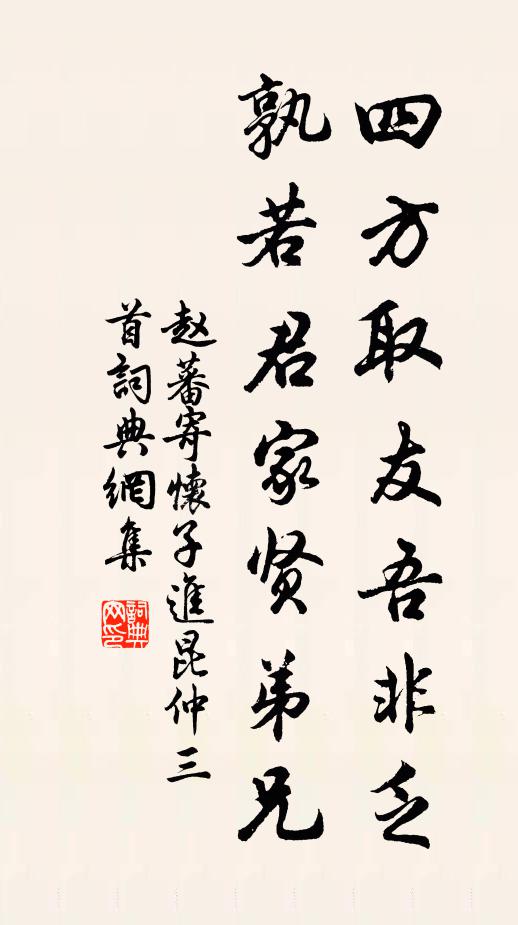 四方取友吾非乏
孰若君家贤弟兄
赵蕃寄懷子進昆仲三
首詞典網集
詞典网印